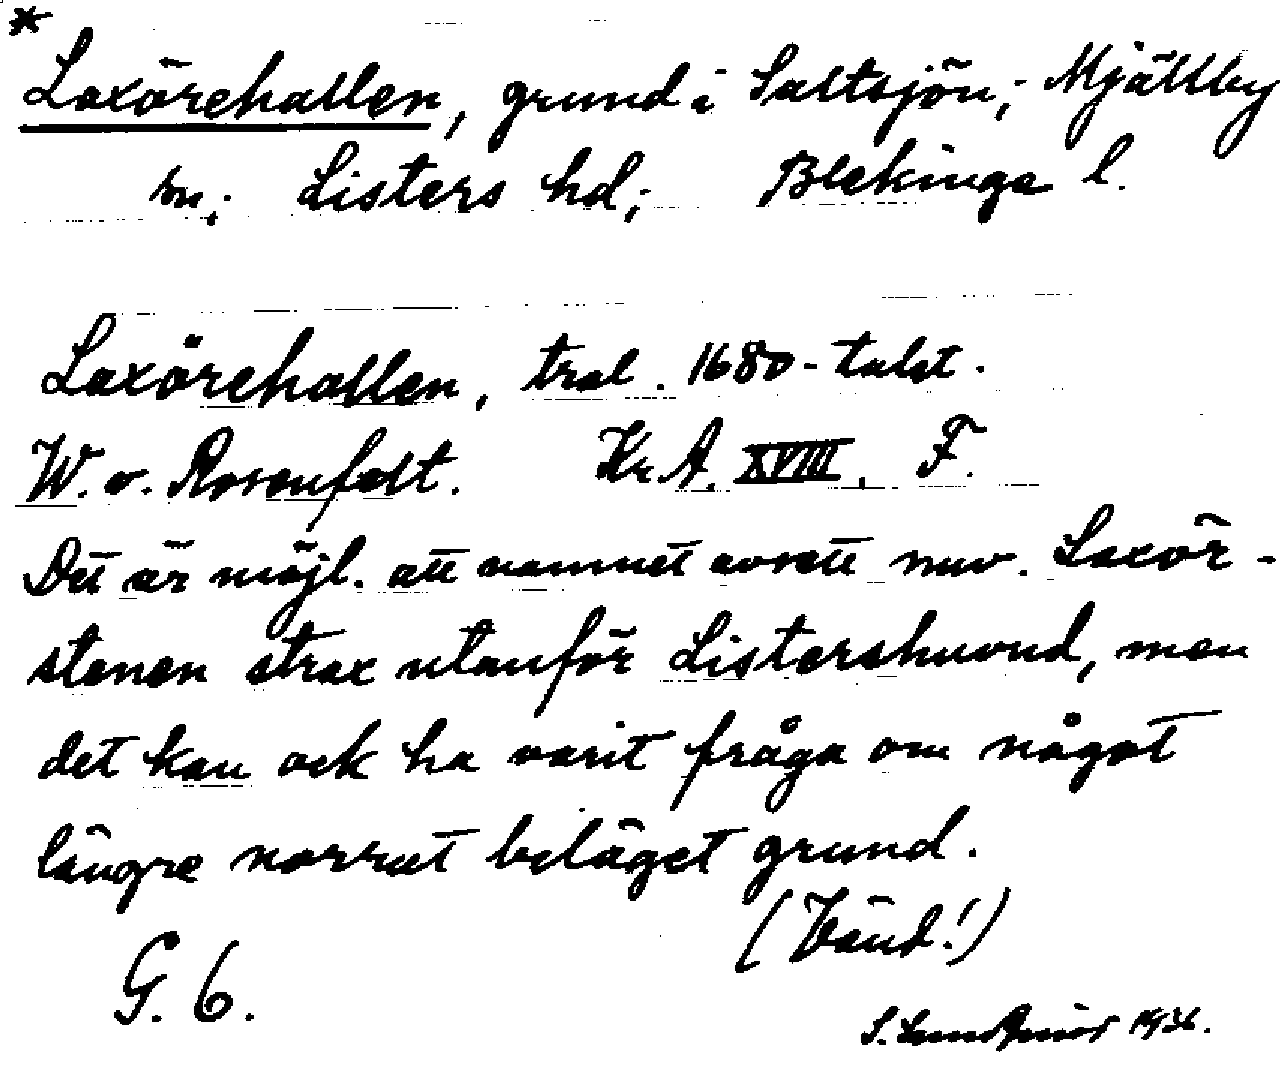 * Laxörehallen, grund i Saltsjön; Mjällby
sn; Listers hd; Blekinge l.
Laxörehallen, trol. 1680-talet.
W. v. Rosenfelt. Kr. A. XVIII, F.
Det är möjl. att namnet avsett nuv. Laxör-
stenen strax utanför Listershuvud, men
det kan ock ha varit fråga om något
längre norrut beläget grund.
(Vänd!)
G. 6.
S. 1936.